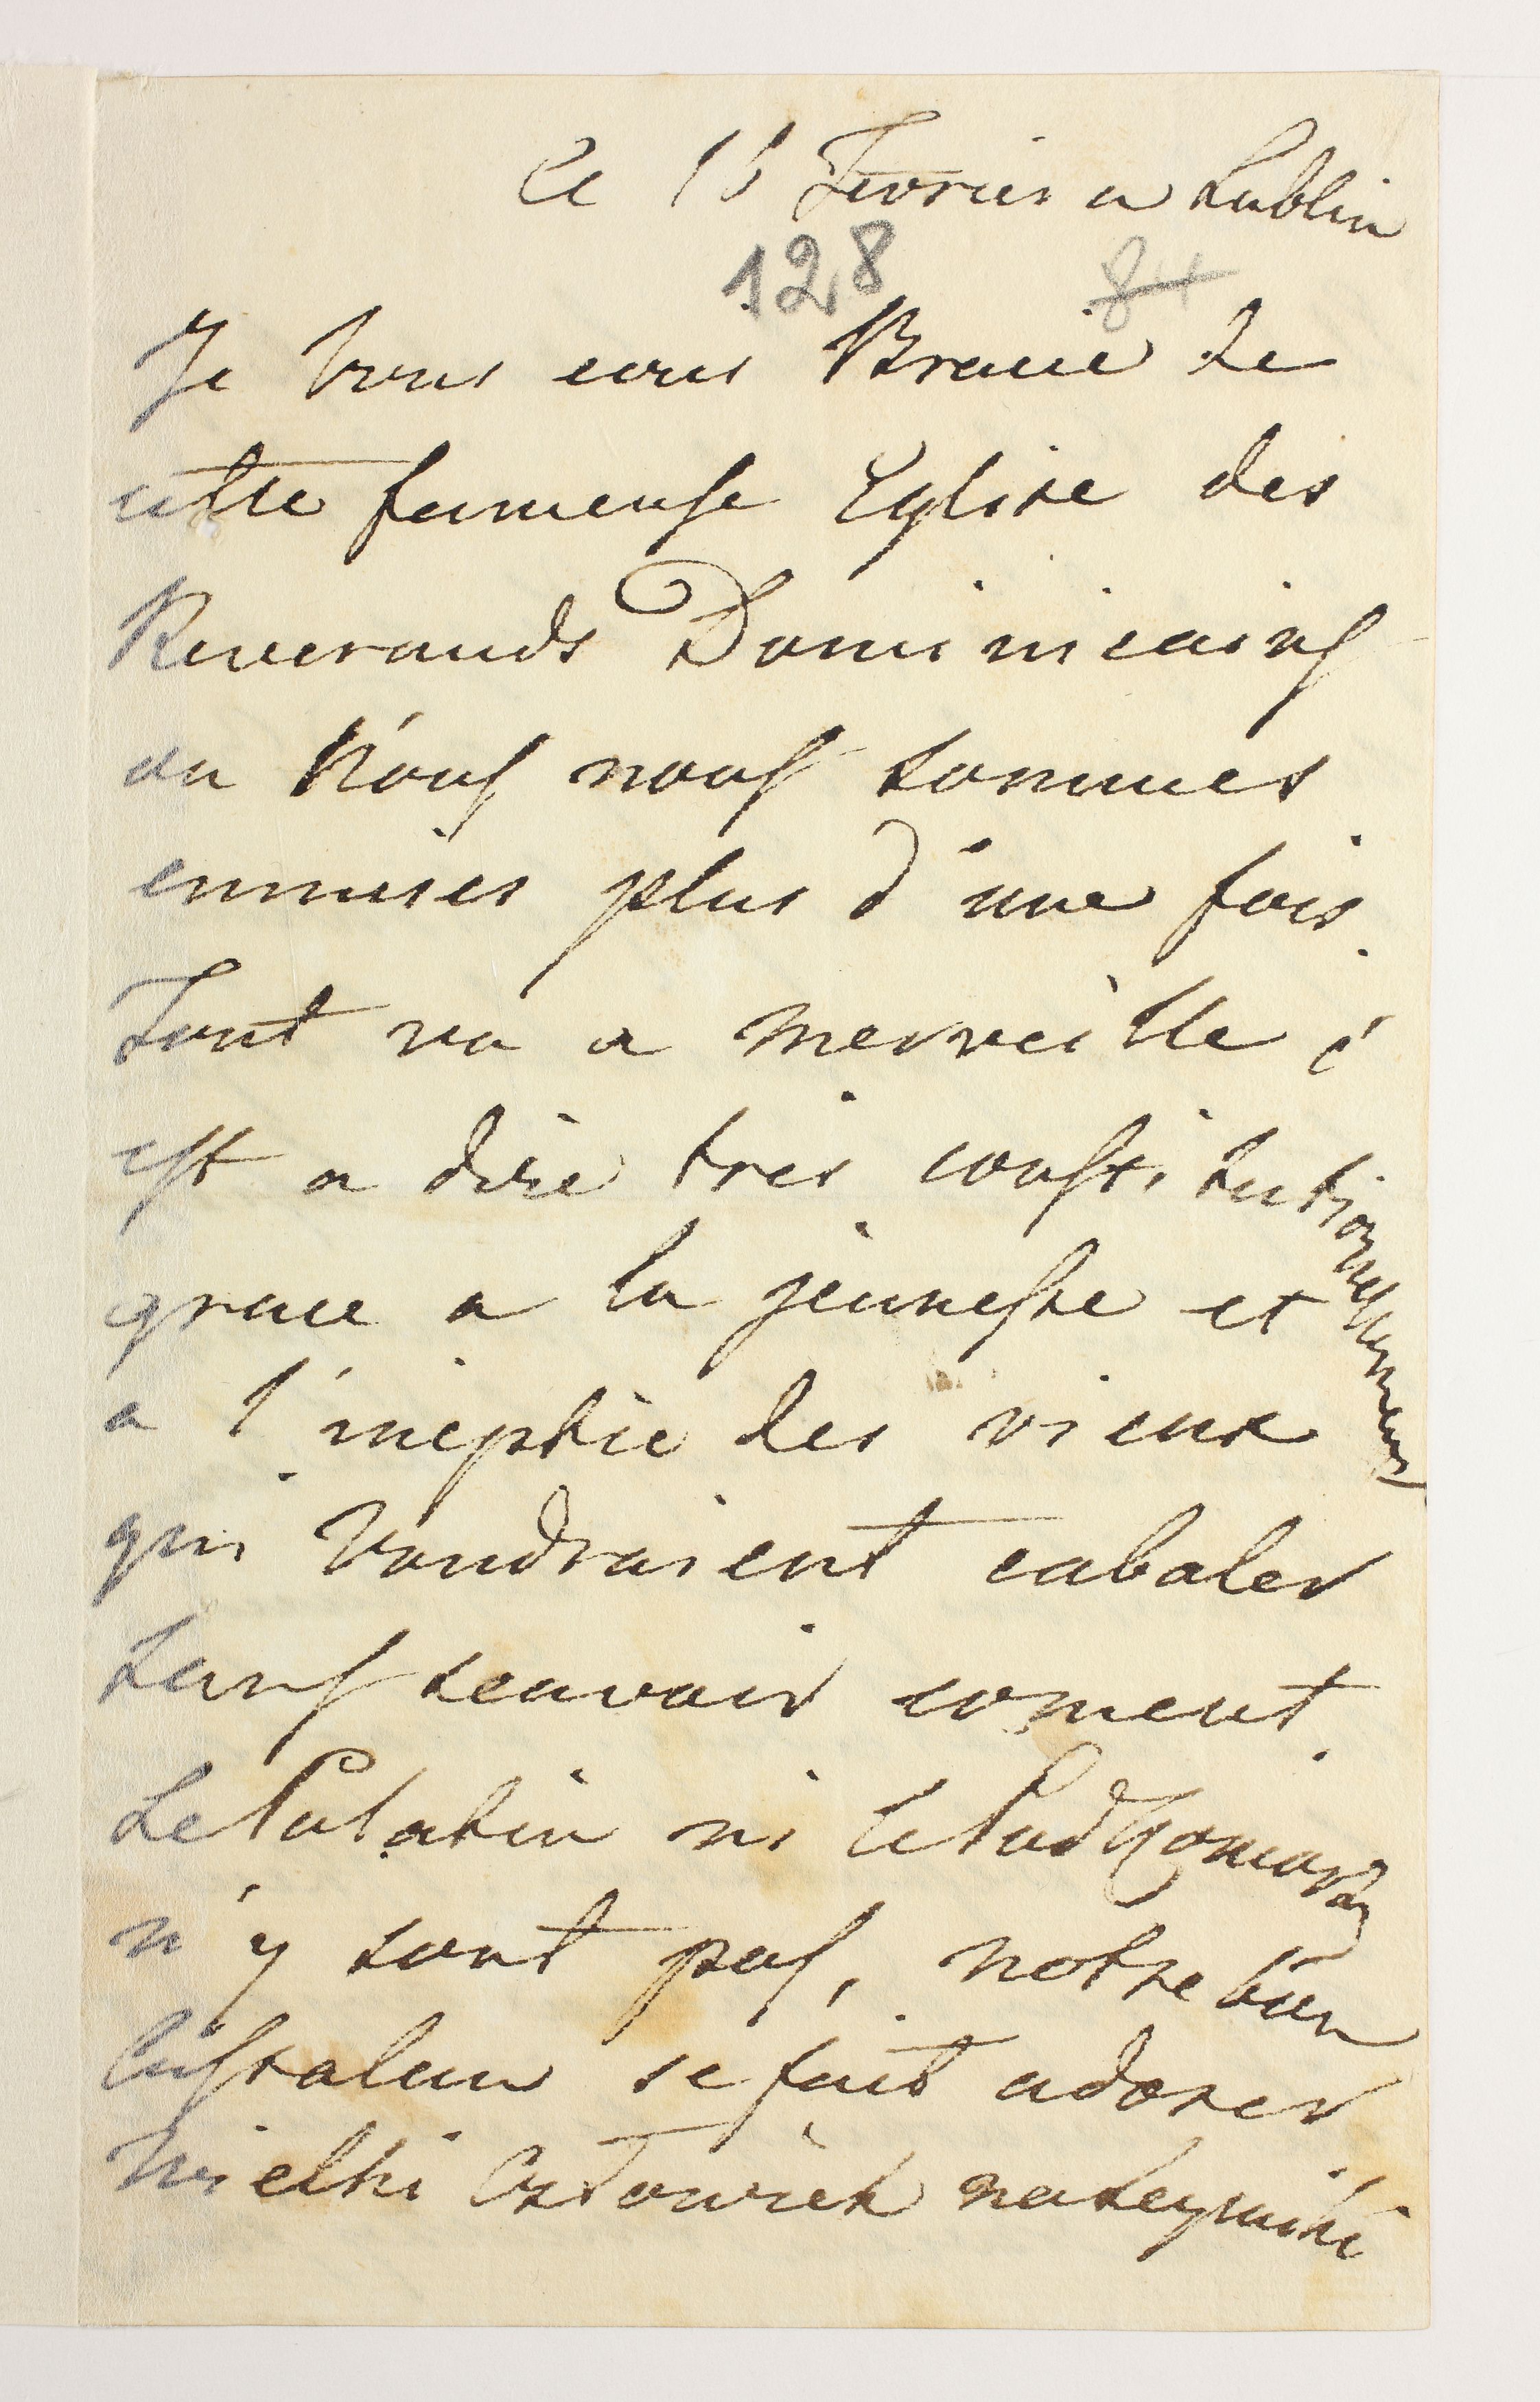 le 15 Fevrier a Lublin
128 84
Je vous ecris Bracie de
cette fameuse Eglise des
Reverands Dominicains
ou Nous nous sommes
ennuies plus d'une fois.
Tout va a merveille c'
est a dire tres constitutionellement
grace a la jeunesse et
a l'ineptie des vieux
qui voudraient cabaler
sans scavoir coment.
Le Palatin ni le Podkomorzy
n'y sont pas, notre bon
Castalan se fait adorer
Wielki Człowiek na seymiki